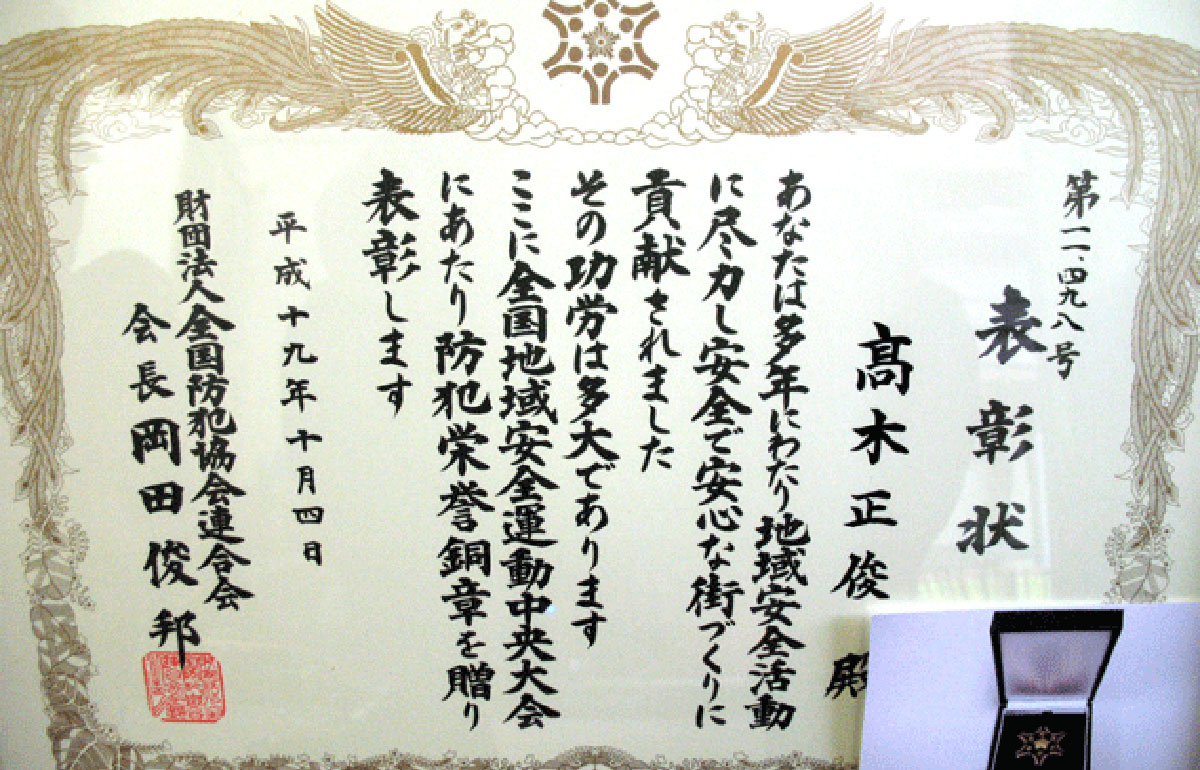 第一一、四九八号
表彰状
髙木正俊 殿
あなたは多年にわたり地域安全活動
に尽力し安全で安心な街づくりに
貢献されました
その功労は多大であります
ここに全国地域安全運動中央大会
にあたり防犯栄誉銅章を贈り
表彰します
平成十九年十月四日
財団法人全国防犯協会連合会
会長 岡田俊邦